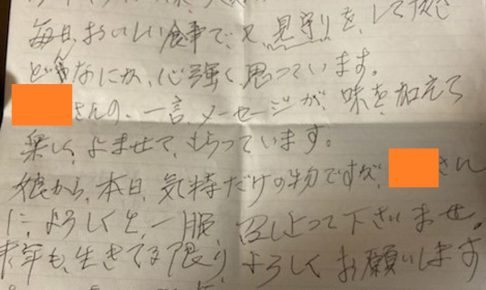 毎日、おいしい食事で、又、見守りを、して頂き
どんなにか、心強く思っています。
さんの、一言メーセージが、味を、加えて
楽しく、よませて、もらっています。
娘から、本日、気持だけの物ですが、さん
に、よろしくと、一服、召し上って下さいませ。
来年も、生きてる限り、よろしくお願いします